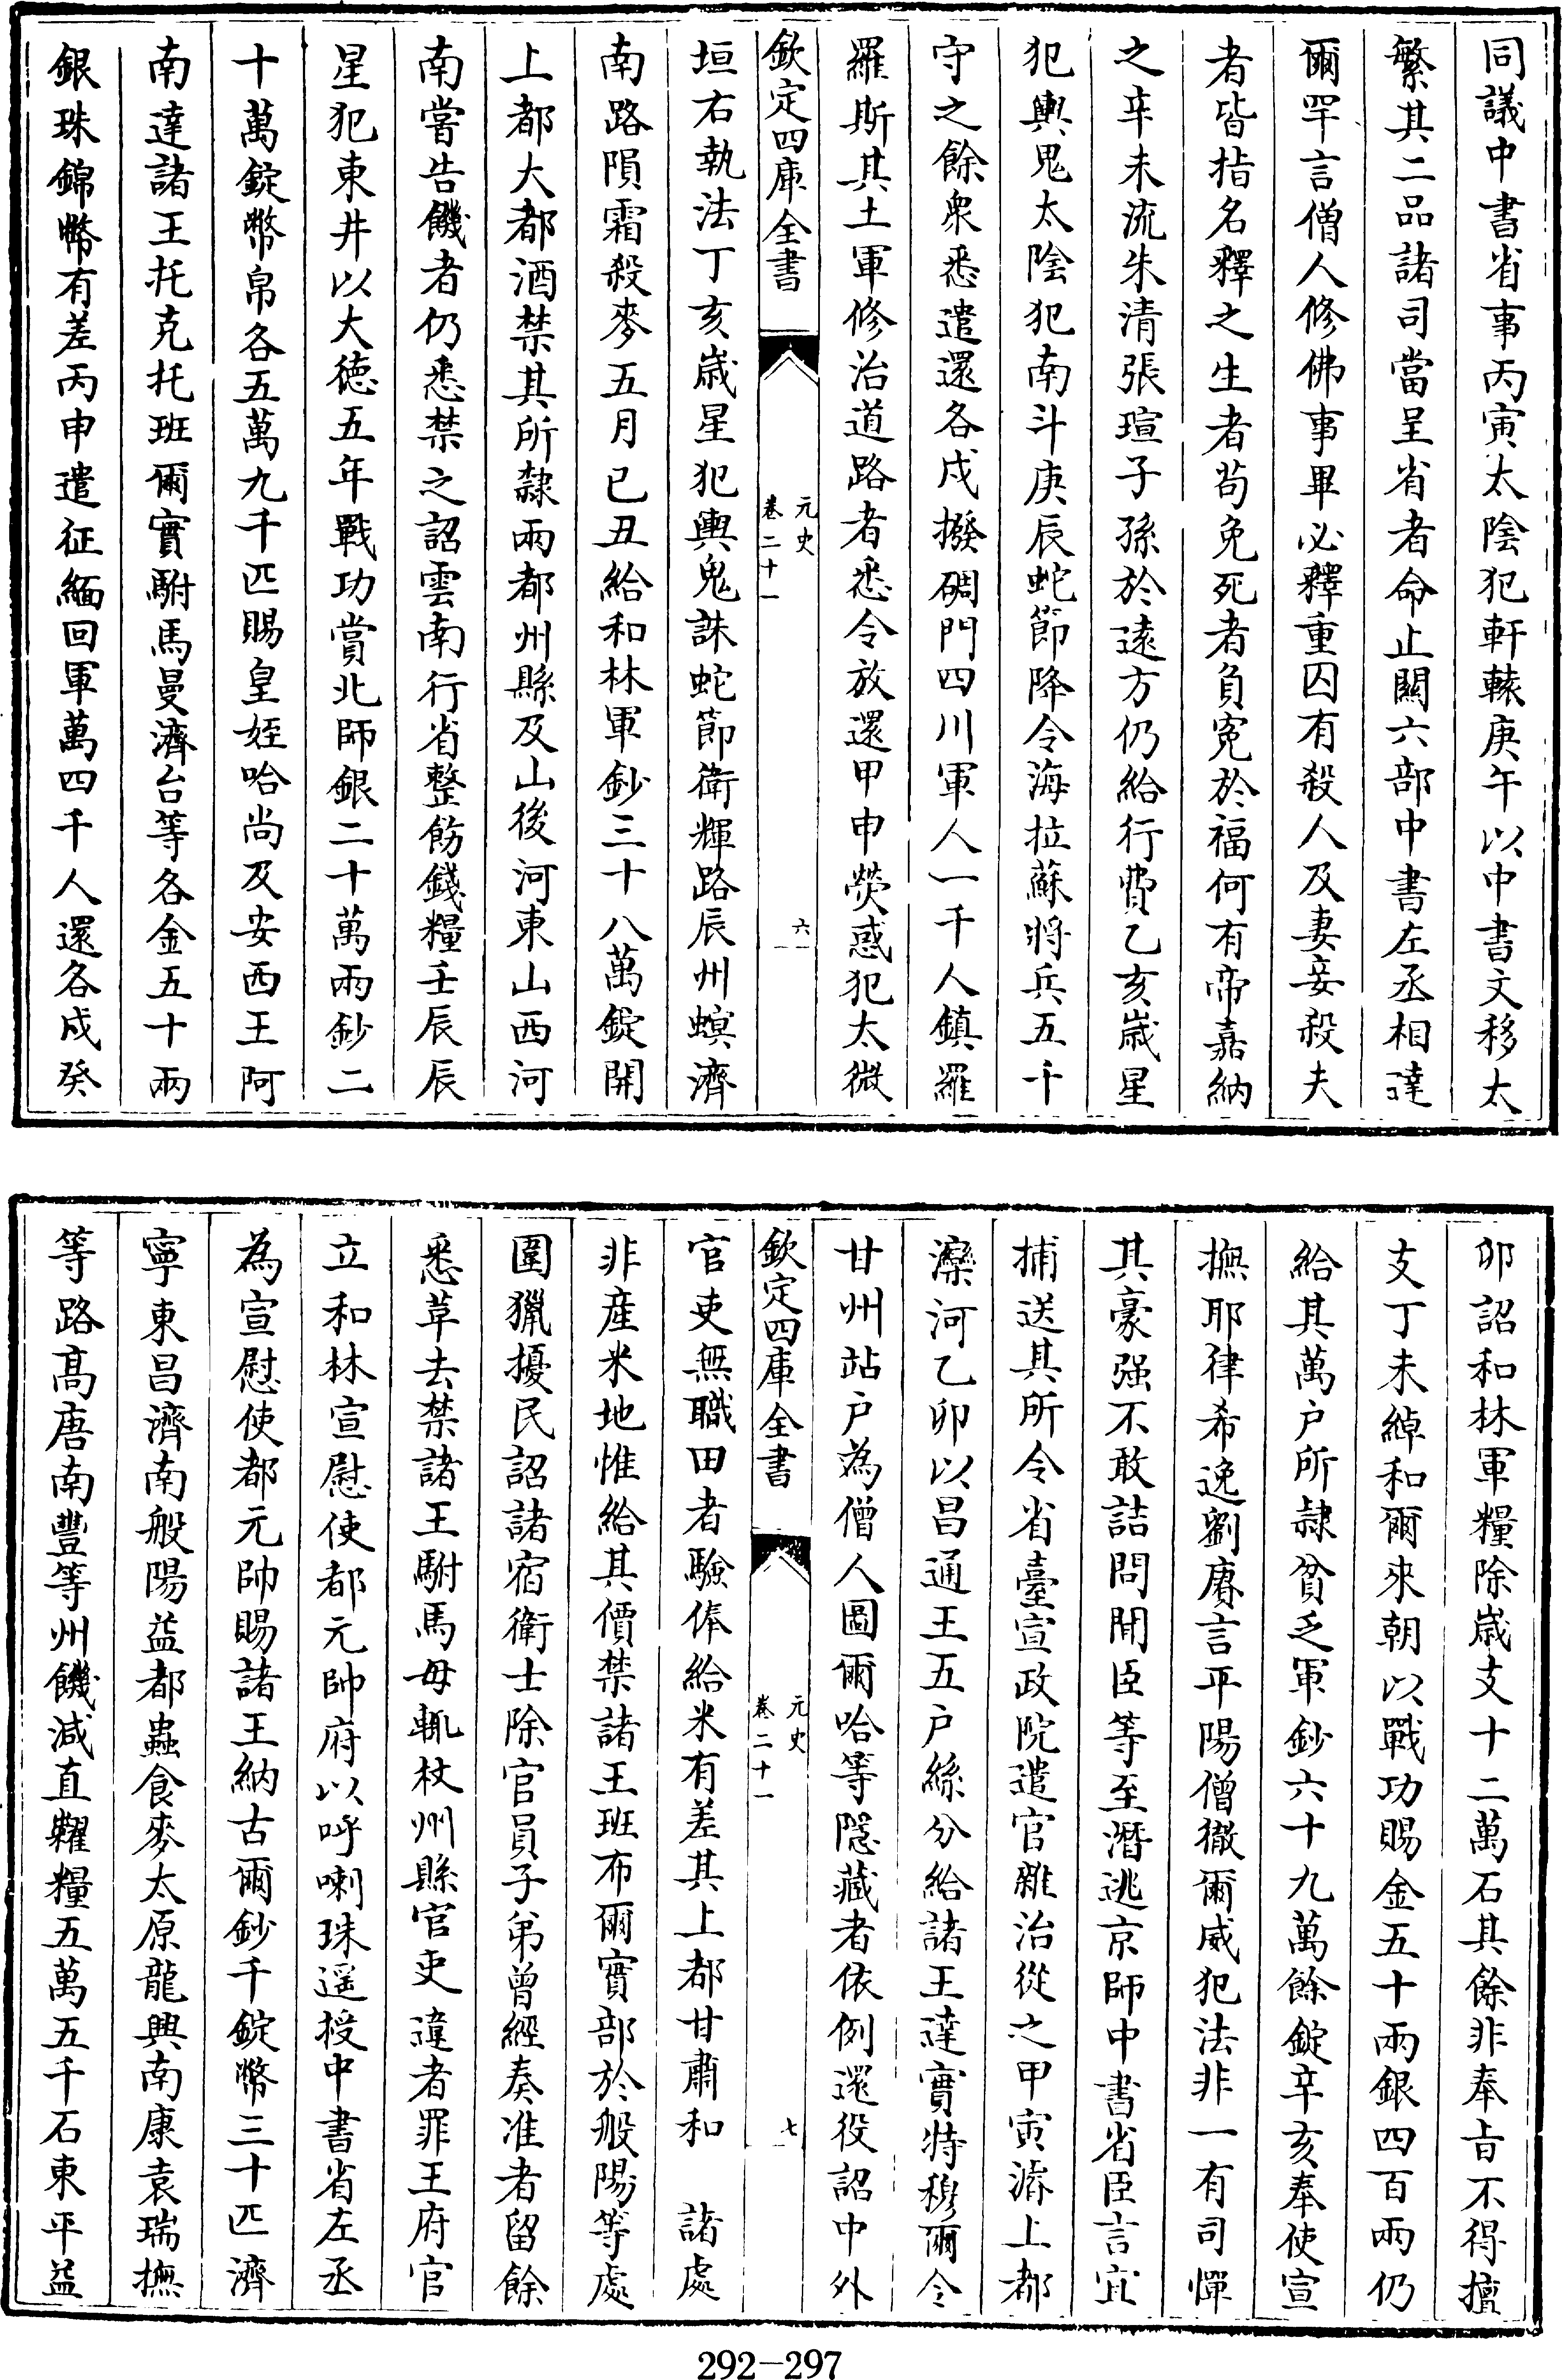 同議中書省事丙寅太陰犯軒轅庚午以中書文移太
繁其二品諸司當呈省者命止關六部中書左丞相達
爾罕言僧人修佛事畢必釋重囚有殺人及妻妾殺夫
者皆指名釋之生者苟免死者負冤於福何有帝嘉納
之辛未流朱清張瑄子孫於遠方仍給行費乙亥歲星
犯輿鬼太陰犯南斗庚辰蛇節降令海拉蘇將兵五千
守之餘衆悉遣還各戍撥碉門四川軍人一千人鎮羅
羅斯其土軍修治道路者悉令放還甲申熒惑犯太微
欽定四庫全書
元史
卷二十一
六
垣右執法丁亥歲星犯輿鬼誅蛇節衛輝路辰州螟濟
南路隕霜殺麥五月己丑給和林軍鈔三十八萬錠開
上都大都酒禁其所隸兩都州縣及山後河東山西河
南嘗告饑者仍悉禁之詔雲南行省整飭錢糧壬辰辰
星犯東井以大徳五年戰功賞北師銀二十萬兩鈔二
十萬錠幣帛各五萬九千匹賜皇姪哈尚及安西王阿
南達諸王托克托班爾實駙馬曼濟台等各金五十兩
銀珠錦幣有差丙申遣征緬回軍萬四千人還各戍癸
卯詔和林軍糧除歲支十二萬石其餘非奉旨不得擅
支丁未綽和爾來朝以戰功賜金五十兩銀四百兩仍
給其萬户所隷貧乏軍鈔六十九萬餘錠辛亥奉使宣
撫耶律希逸劉賡言平陽僧徹爾威犯法非一有司憚
其豪强不敢詰問聞臣等至潛逃京師中書省臣言宜
捕送其所令省臺宣政院遣官雜治從之甲寅濬上都
灤河乙卯以昌通王五户絲分給諸王達實特穆爾令
甘州站户為僧人圖爾哈等隱藏者依例還役詔中外
欽定四庫全書
元史
卷二十一
七
官吏無職田者驗俸給米有差其上都甘肅和 諸處
非産米地惟給其價禁諸王班布爾實部於般陽等處
圍獵擾民詔諸宿衛士除官員子弟曾經奏准者留餘
悉革去禁諸王駙馬毋輒杖州縣官吏違者罪王府官
立和林宣慰使都元帥府以呼喇珠遥授中書省左丞
為宣慰使都元帥賜諸王納古爾鈔千錠幣三十匹濟
寧東昌濟南般陽益都蟲食麥太原龍興南康袁瑞撫
等路髙唐南豐等州饑減直糶糧五萬五千石東平益
292-297